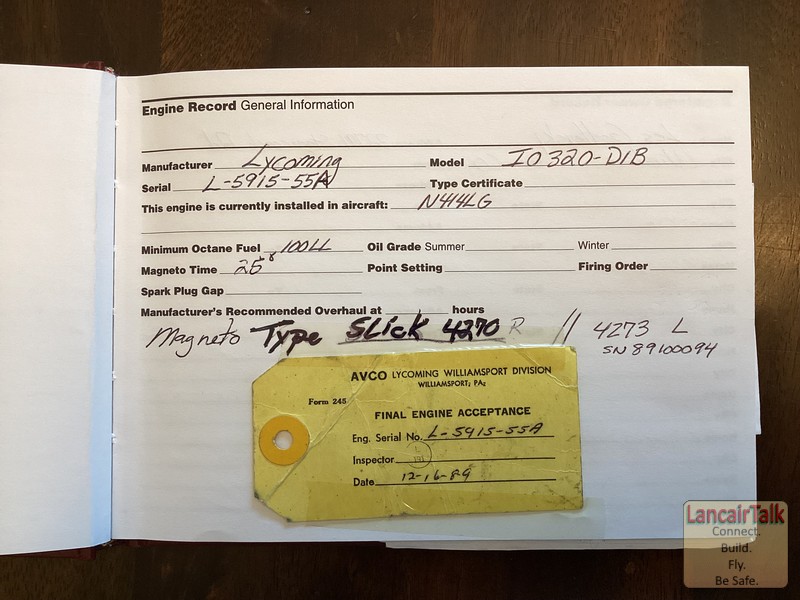 Engine Record General Information
Manufacturer Lycoming Model IO320-D1B
Serial L-5915-55A Type Certificate
This engine is currently installed in aircraft: N414LG
Minimum Octane Fuel 100LL Oil Grade Summer Winter
Magneto Time 25° Point Setting Firing Order
Spark Plug Gap
Manufacturer's Recommended Overhaul at hours
Magneto Type Slick 4270 R // 4273 L
SN 89100094
AVCO LYCOMING WILLIAMSPORT DIVISION
WILLIAMSPORT, PA.
Form 245
FINAL ENGINE ACCEPTANCE
Eng. Serial No. L-5915-55A
Inspector
Date 12-16-89
LancairTalk
Connect.
Build.
Fly.
Be Safe.